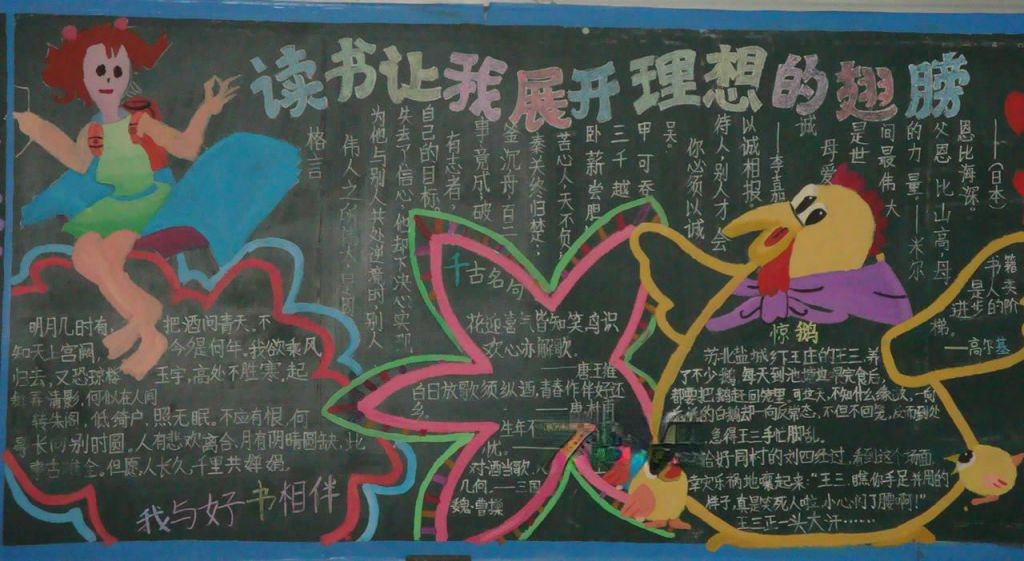 读书让我展开理想的翅膀
格言
伟人之所以伟大,是因
为他与别人共处逆境时,别人
失去了信心,他却下决心实现
自己的目标。
有志者,
事竟成,破
釜沉舟,百二
秦关终归楚;
苦心人,天不负,
卧薪尝胆,
三千越
甲可吞
吴。
你必须以诚
待人,别人才会
以诚相报。
——李嘉
诚
母爱
是世
间最伟大
的力量。——米尔
父恩比山高,母
恩比海深。
——(日本)
书籍
是人类
进步的阶
梯。
——高尔基
明月几时有,把酒问青天,不
知天上宫阙,今夕是何年。我欲乘风
归去,又恐琼楼玉宇,高处不胜寒,起
舞弄清影,何似在人间
转朱阁,低绮户,照无眠。不应有恨,何
事长向别时圆。人有悲欢离合,月有阴晴圆缺,此
事古难全。但愿人长久,千里共婵娟。
我与好书相伴
千古名句
花迎喜气皆知笑,鸟识
欢心亦解歌。
——唐王维
白日放歌须纵酒,青春作伴好还
乡。
——唐
生年不
忧。
对酒当歌,人
几何。——三国
魏·曹操
惊鹅
苏北盐城红王庄的王三,养
了不少鹅,每天到池塘边早完食后,
都要把鹅赶回
的白鹅却一向反常态,不但不回笼,反而到处
急得王三手忙脚乱。
恰好同村的刘四经过,看到这个场面
幸灾乐祸地嚷起来:“王三,瞧你手足并用的
样子,真是笑死人啦,小心闪了腰啊!”
王三正一头大汗……